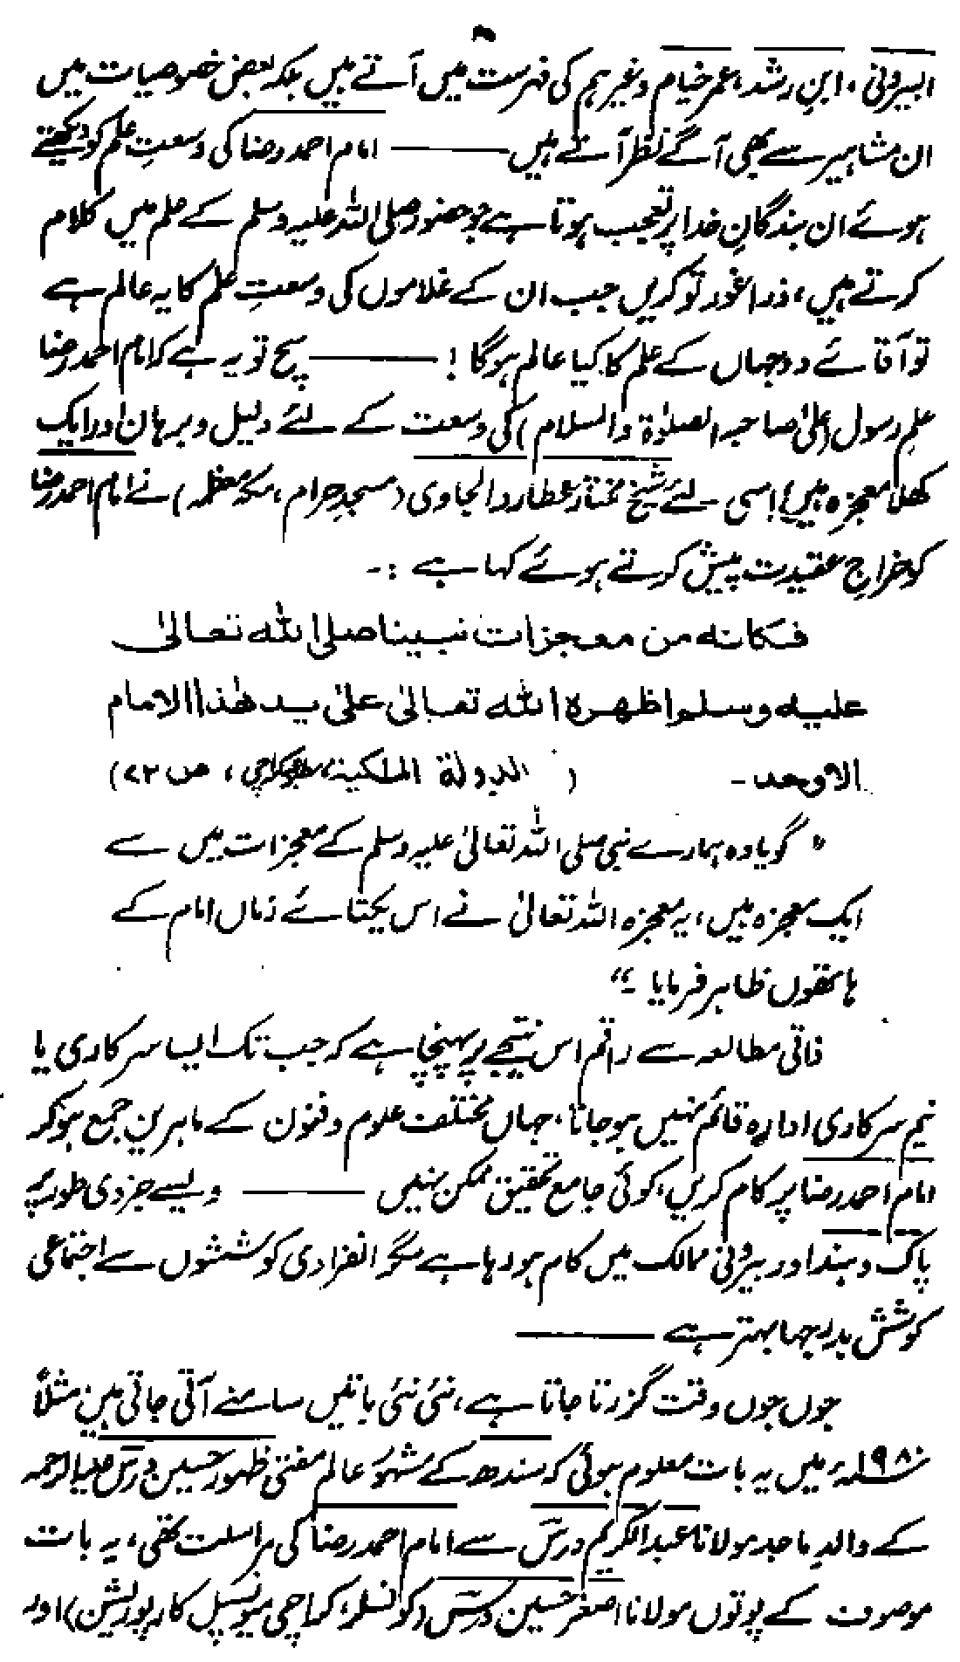 ۳
البیرونی، ابنِ رشد، عمر خیام وغیرہم کی فہرست میں آتے ہیں بلکہ بعض خصوصیات میں
ان مشاہیر سے بھی آگے نظر آتے ہیں ——— امام احمد رضا کی وسعتِ علم کو دیکھتے
ہوئے ان بندگانِ خدا پر تعجب ہوتا ہے جو حضور صلی اللہ علیہ وسلم کے علم میں کلام
کرتے ہیں، ذرا غور تو کریں جب ان کے غلاموں کی وسعتِ علم کا یہ عالم ہے
تو آقائے دوجہاں کے علم کا کیا عالم ہوگا! ——— سچ تو یہ ہے کہ امام احمد رضا
علمِ رسول (علیٰ صاحبہ الصلوٰۃ والسلام) کی وسعت کے لئے دلیل و برہان اور ایک
کھلا معجزہ ہیں، اِسی لئے شیخ مختار عطارد الجاوی (مسجدِ حرام، مکہ معظمہ) نے امام احمد رضا
کو خراجِ عقیدت پیش کرتے ہوئے کہا ہے :۔
فکانہ من معجزات نبینا صلی اللہ تعالیٰ
علیہ وسلم اظہرہ اللہ تعالیٰ علیٰ ید ھٰذا الامام
الاوحد۔ (الدولۃ المکیۃ، مطبوعہ کراچی، ص ۲۲)
"گویا وہ ہمارے نبی صلی اللہ تعالیٰ علیہ وسلم کے معجزات میں سے
ایک معجزہ ہیں، یہ معجزہ اللہ تعالیٰ نے اس یکتائے زماں امام کے
ہاتھوں ظاہر فرمایا۔"
ذاتی مطالعہ سے راقم اس نتیجے پر پہنچا ہے کہ جب تک ایسا سرکاری یا
نیم سرکاری ادارہ قائم نہیں ہو جاتا، جہاں مختلف علوم و فنون کے ماہرین جمع ہو کر
امام احمد رضا پر کام کریں، کوئی جامع تحقیق ممکن نہیں ——— ویسے جزوی طور پر
پاک و ہند اور بیرونی ممالک میں کام ہو رہا ہے مگر انفرادی کوششوں سے اجتماعی
کوشش بدرجہا بہتر ہے ———
جوں جوں وقت گزرتا جاتا ہے، نئی نئی باتیں سامنے آتی جاتی ہیں مثلاً
۱۹۸۰ء میں یہ بات معلوم ہوئی کہ سندھ کے مشہور عالم مفتی ظہور حسین درس علیہ الرحمہ
کے والدِ ماجد مولانا عبدالکریم درس سے امام احمد رضا کی مراسلت تھی، یہ بات
موصوف کے پوتوں مولانا اصغر حسین درس (کونسلر، کراچی میونسپل کارپوریشن) اور